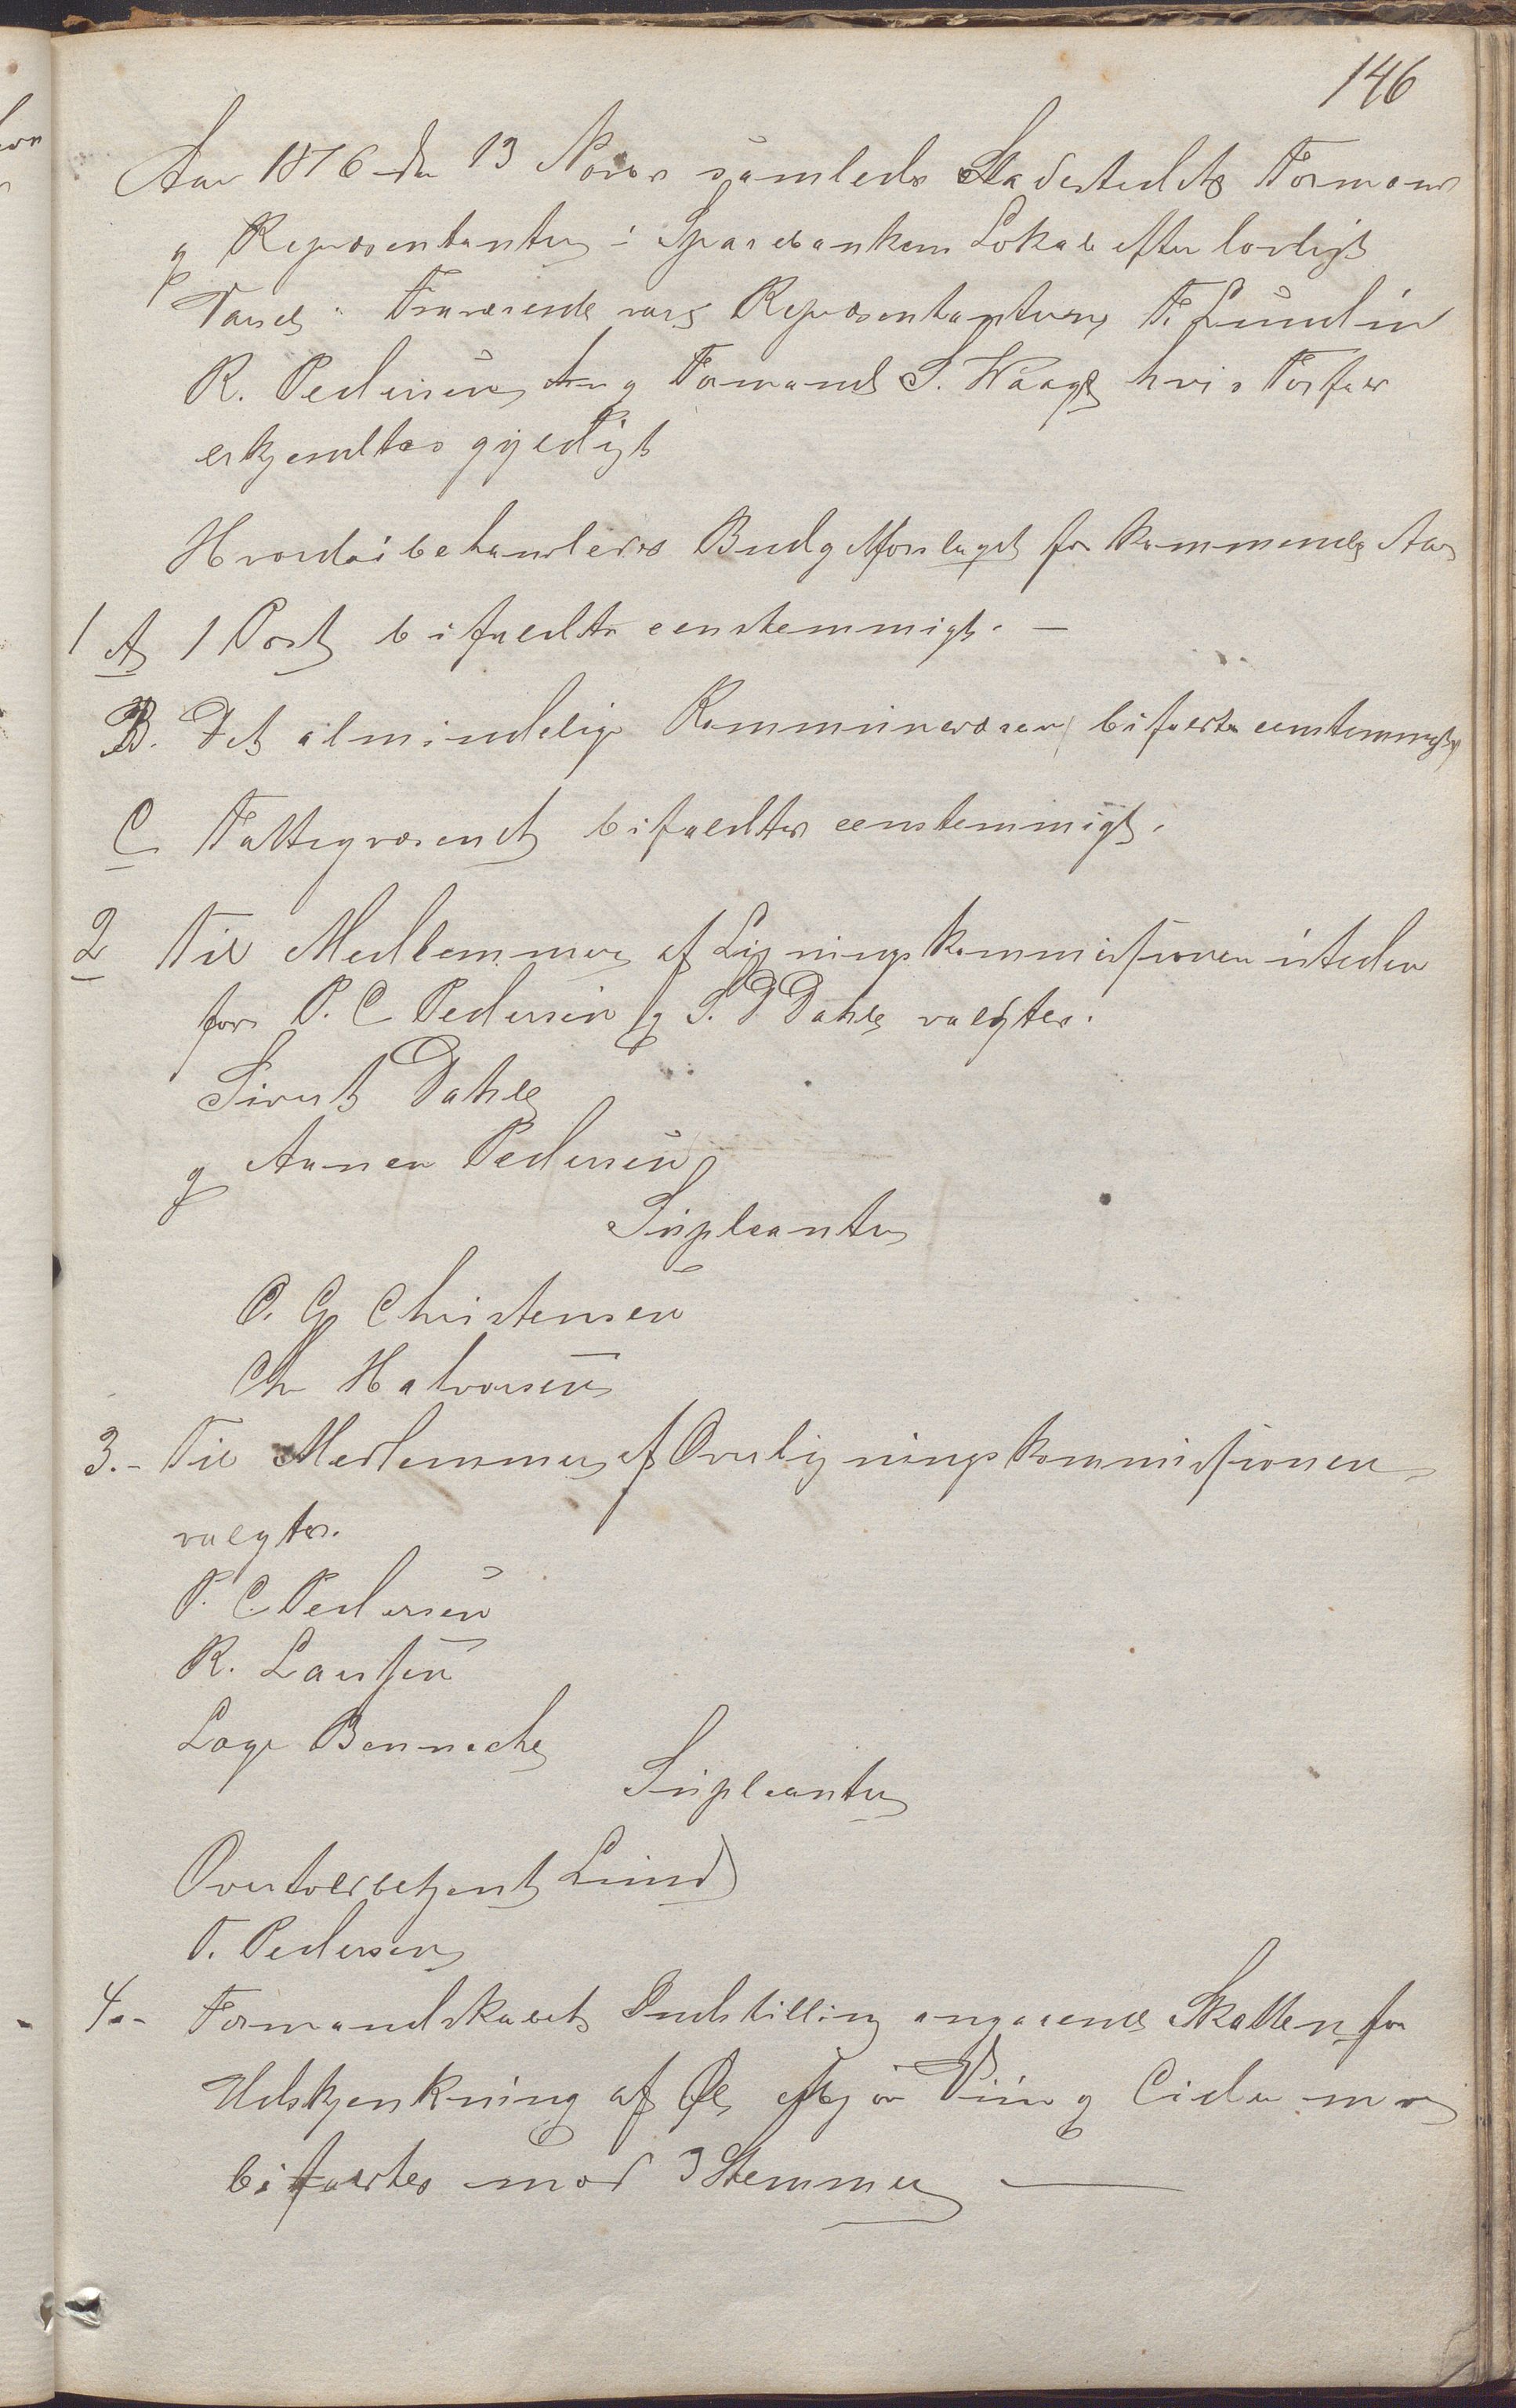 146
Aar 1876 den 13 Novbr samledes Ladestedets Formænd
og Repræsentanter i Sparebankens Lokale efter lovligt
Varsel. Fraværende vare Repræsentanterne F. Lundin
R. Pedersen og Formand S. Waage hvis Forfald
erkjendtes gyldigt
Hvorda behandledes Budgetforslaget for kommende Aar
1 A 1 Post bifaldtes eenstemmigt. —
B. Det almindelige Kommunevæsen bifaldtes eenstemmigt
C Fattigvæsenet bifaldtes eenstemmigt.
2 Til Medlemmer af Ligningskommissionen isteden
for P. C Pedersen og S. D Dahle valgtes.
Sivert Dahle
og Aanen Pedersen
Supleanter
O. G Christensen
Chr Halvorsen
3. - Til Medlemmer af Overligningskommissionen
valgtes.
P. C. Pedersen
R. Laursen
Lage Benneche
Supleanter
Overtoldbetjent Lund
T. Pedersen
4. - Formandskabets Indstilling angaaende Skatten for
Udskjenkning af Øl, Mjød Viin og Cider m v
bifaldtes mod 3 Stemmer —